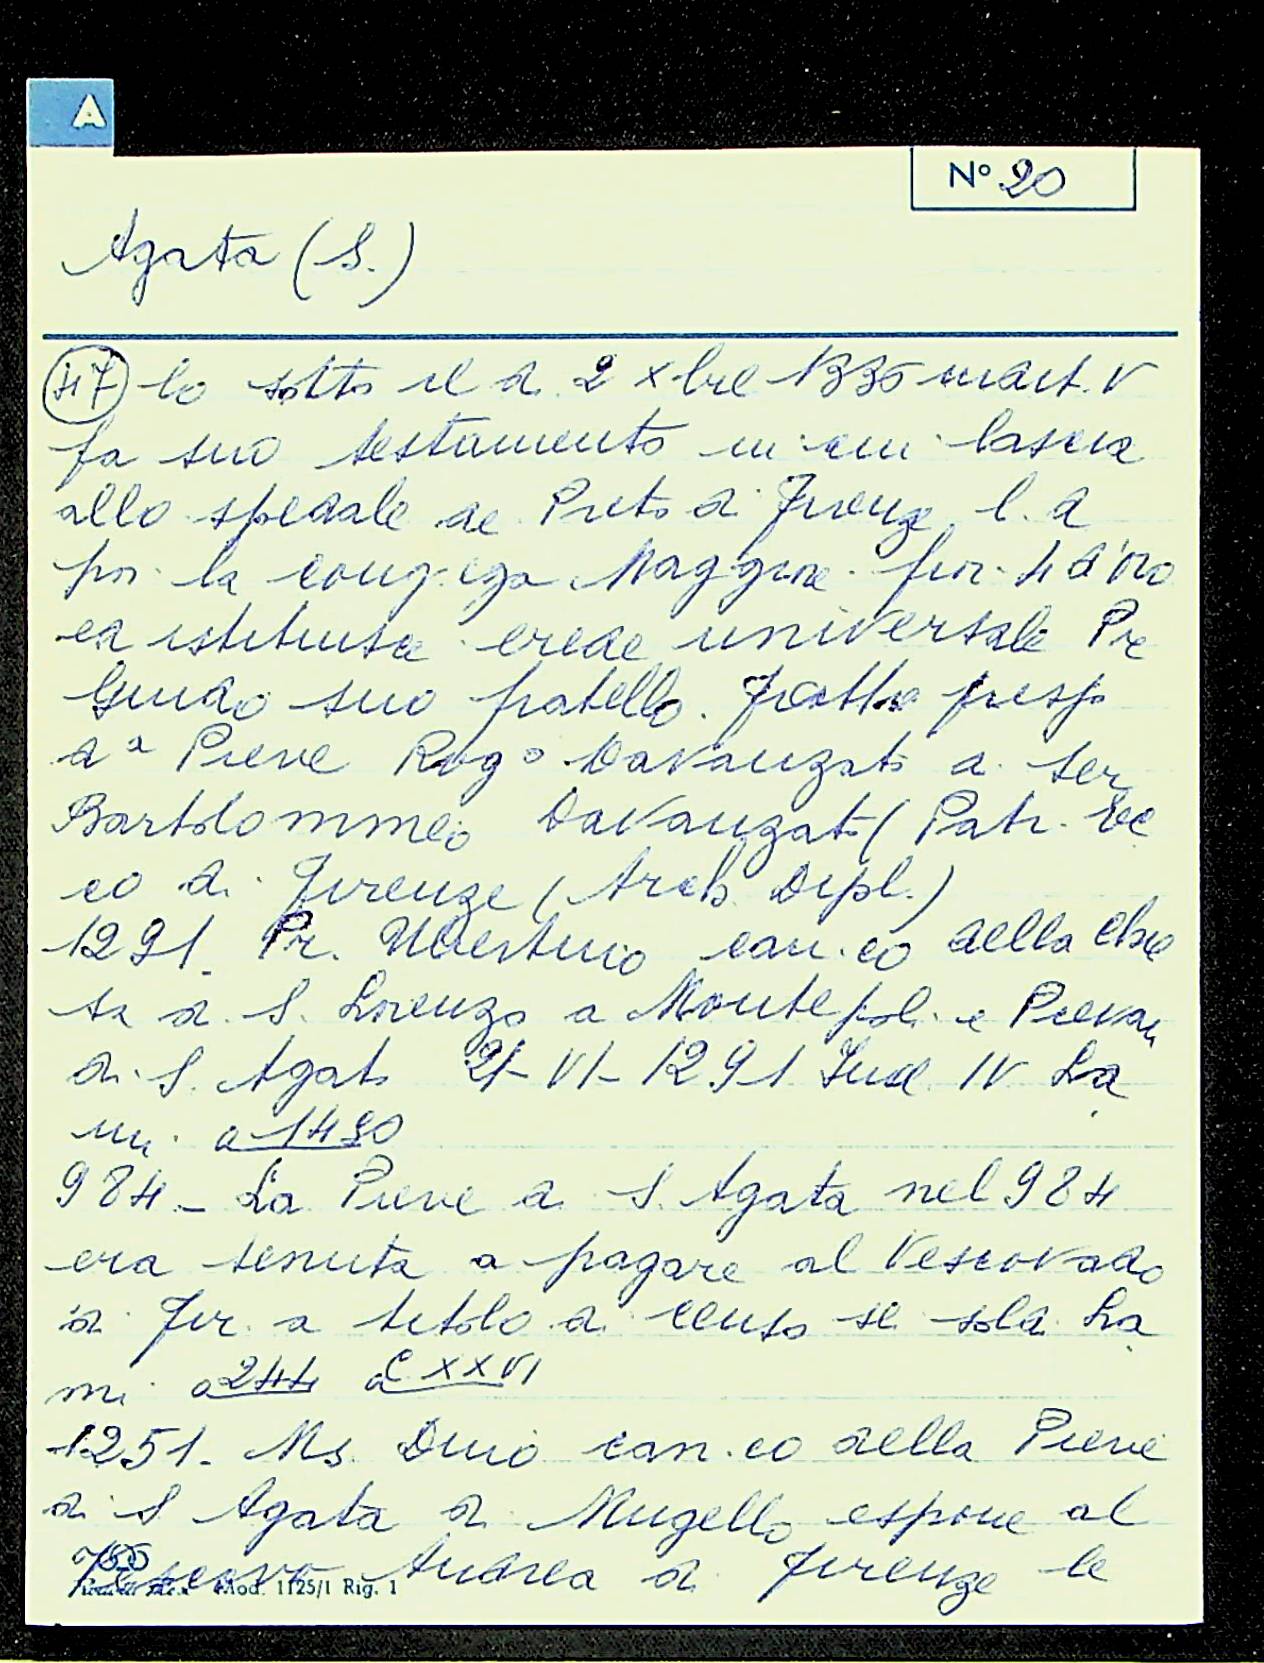 A
N° 20
Agata (S.)
47 lo sotto il d. 2 xbre 1336 indit. V
fa suo testamento in cui lascia
allo spedale de Preti di Firenze l. d
per la cong. ega Maggiore fior. 4 d'oro
ed istituisce erede universale Pre
Guido suo fratello. Fatto presso
da Pieve Rogo Davanzato di ser
Bartolommeo Davanzati (Patr. Ve
co di Firenze (Arch. Dipl.)
1291. Pr. Ubertino can.co della Chie
sa di S. Lorenzo a Montepol. e Pievan
di S. Agata 21-VI-1291 Ind. IV La
mi. a 1490
984 - La Pieve di S. Agata nel 984
era tenuta a pagare al Vescovado
di Fir. a titolo di censo sei soldi La
mi a 244 a CXXVI
1251. Ms. Dino can.co della Pieve
di S Agata di Mugello espone al
Vescovo Andrea di Firenze le
Mod. 1125/1 Rig. 1